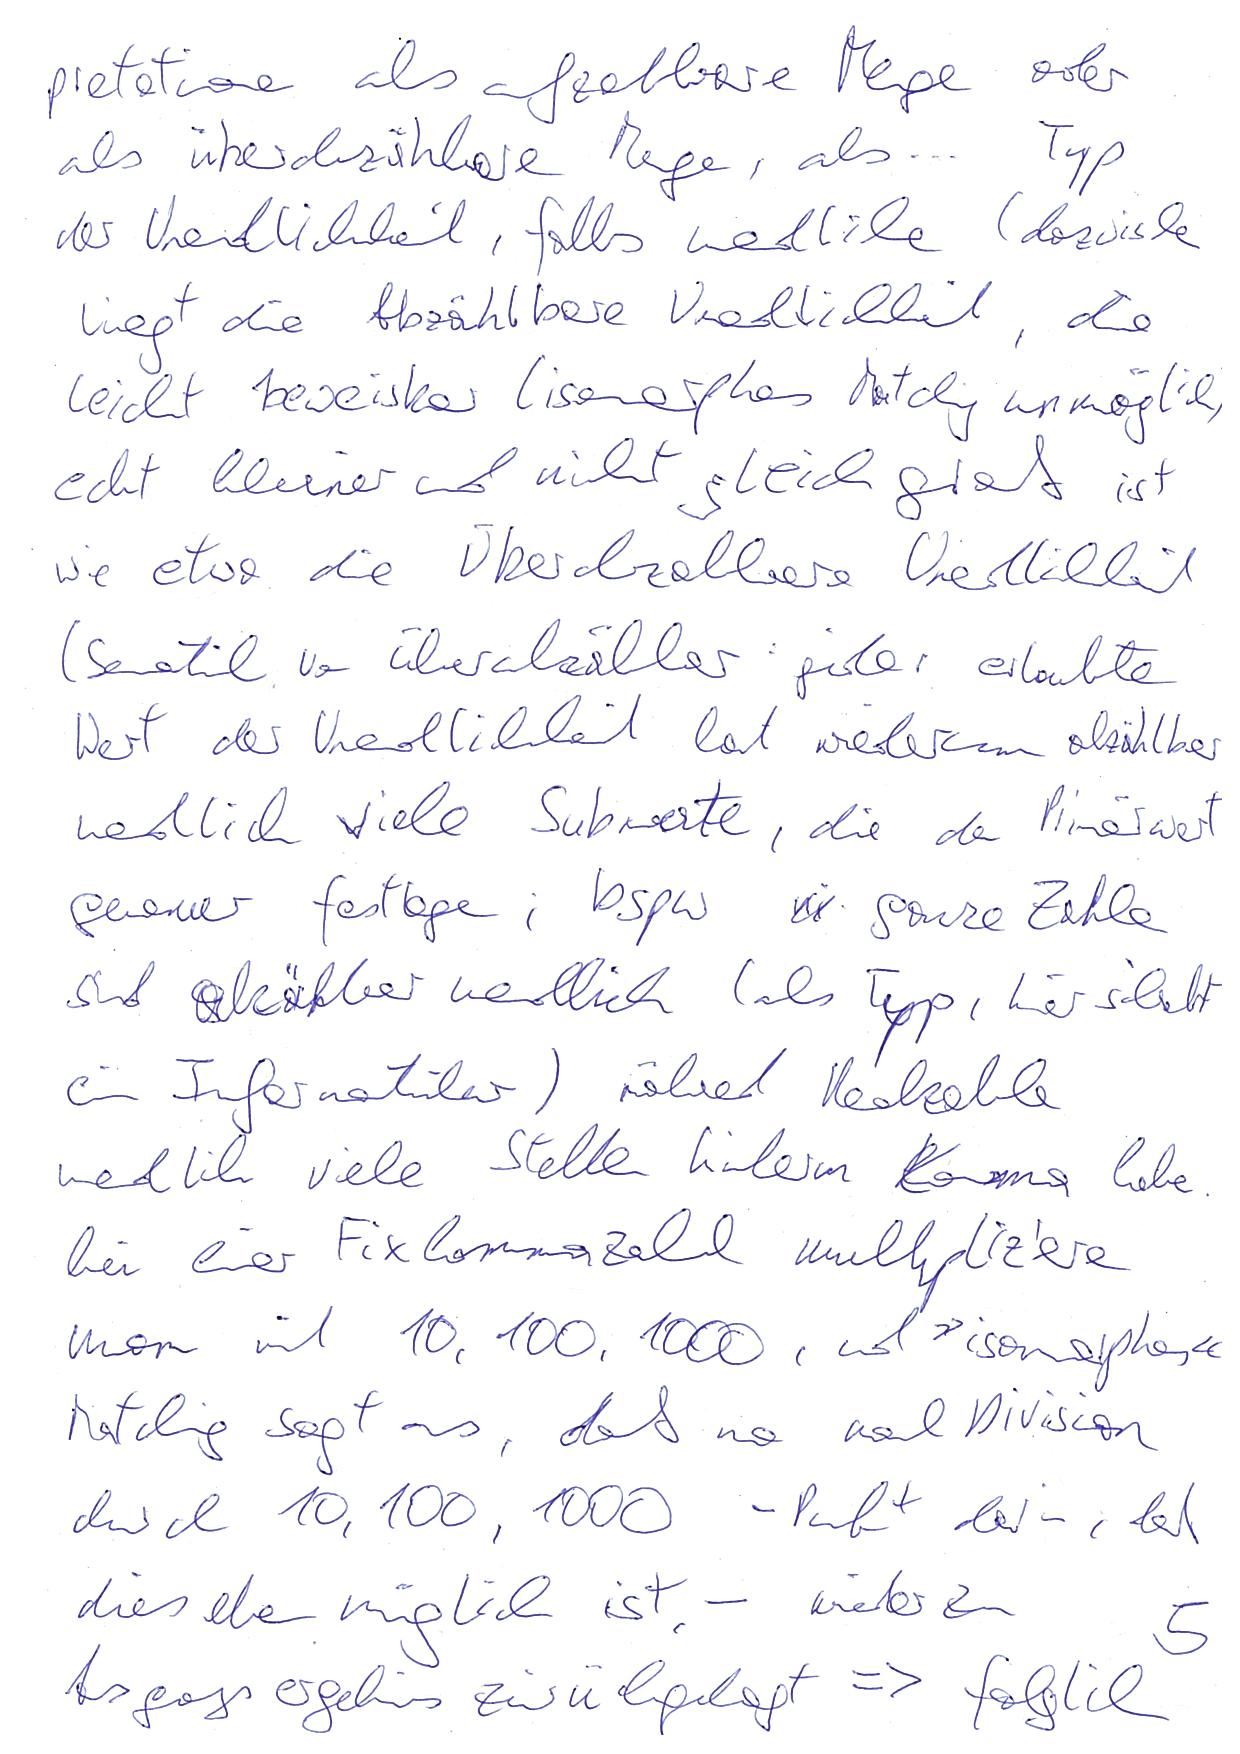 pretatione als abzählbare Menge oder
als überabzählbare Menge, als ... Typ
der Unendlichkeit, falls unendliche (dazwischen
liegt die Abzählbare Unendlichkeit, die
leicht beweisbar (isomorphes Matching unmöglich)
echt kleiner und nicht gleich groß ist
wie etwa die Überabzählbare Unendlichkeit
(Semantik von überabzählbar: jeder erlaubte
Wert der Unendlichkeit hat wiederum abzählbar
unendlich viele Subwerte, die den Primärwert
genauer festlegen; bspw ganze Zahlen
sind abzählbar unendlich (als Typ, hier schreibt
ein Informatiker) während Realzahlen
unendlich viele Stellen hinterm Komma haben.
bei einer Fixkommazahl multipliziere
man mit 10, 100, 1000, und »isomorphes«
Matching sagt uns, daß man nach Division
durch 10, 100, 1000 - Punkt der -, daß
dies eben möglich ist, - wieder zum
Ausgangsergebnis zurückgelangt => folglich
5